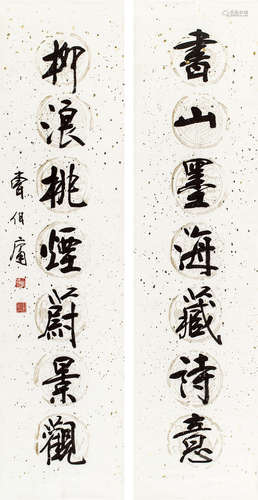 書山墨海藏詩意
柳浪桃煙蔚景觀
曹伯庸